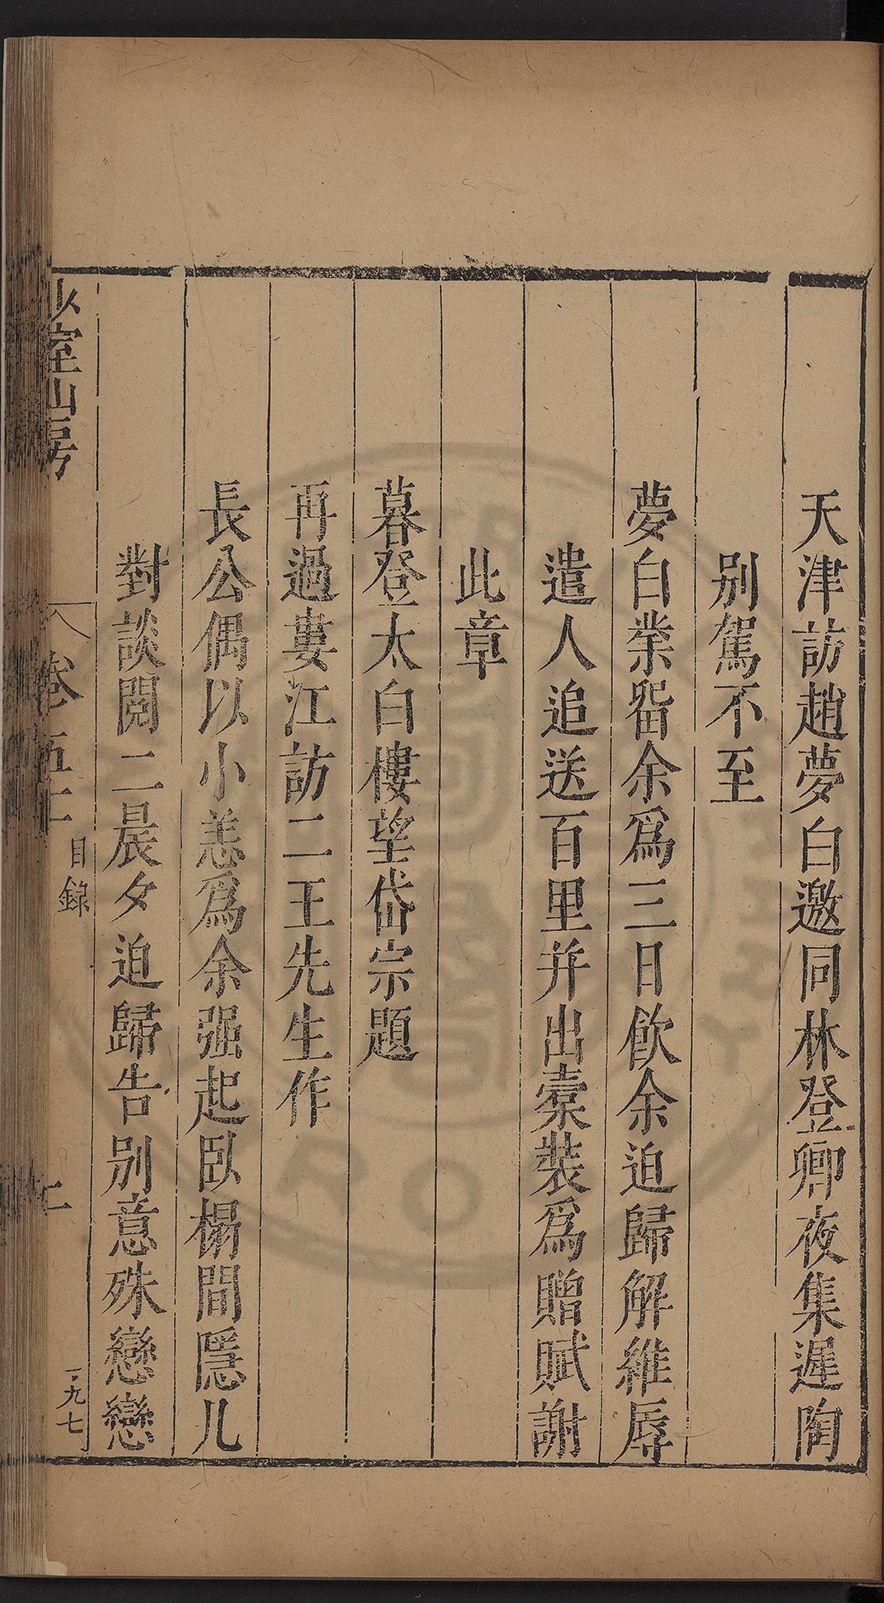 天津訪趙夢白邀同林登卿夜集遲陶
別駕不至
夢白業畱余爲三日飲余迫歸解維辱
遣人追送百里并出橐裝爲贈賦謝
此章
暮登太白樓望岱宗題
再過婁江訪二王先生作
長公偶以小恙爲余强起臥榻間隱几
對談閱二晨夕迫歸告別意殊戀戀
少室山房
卷五十
目錄
二
一九七